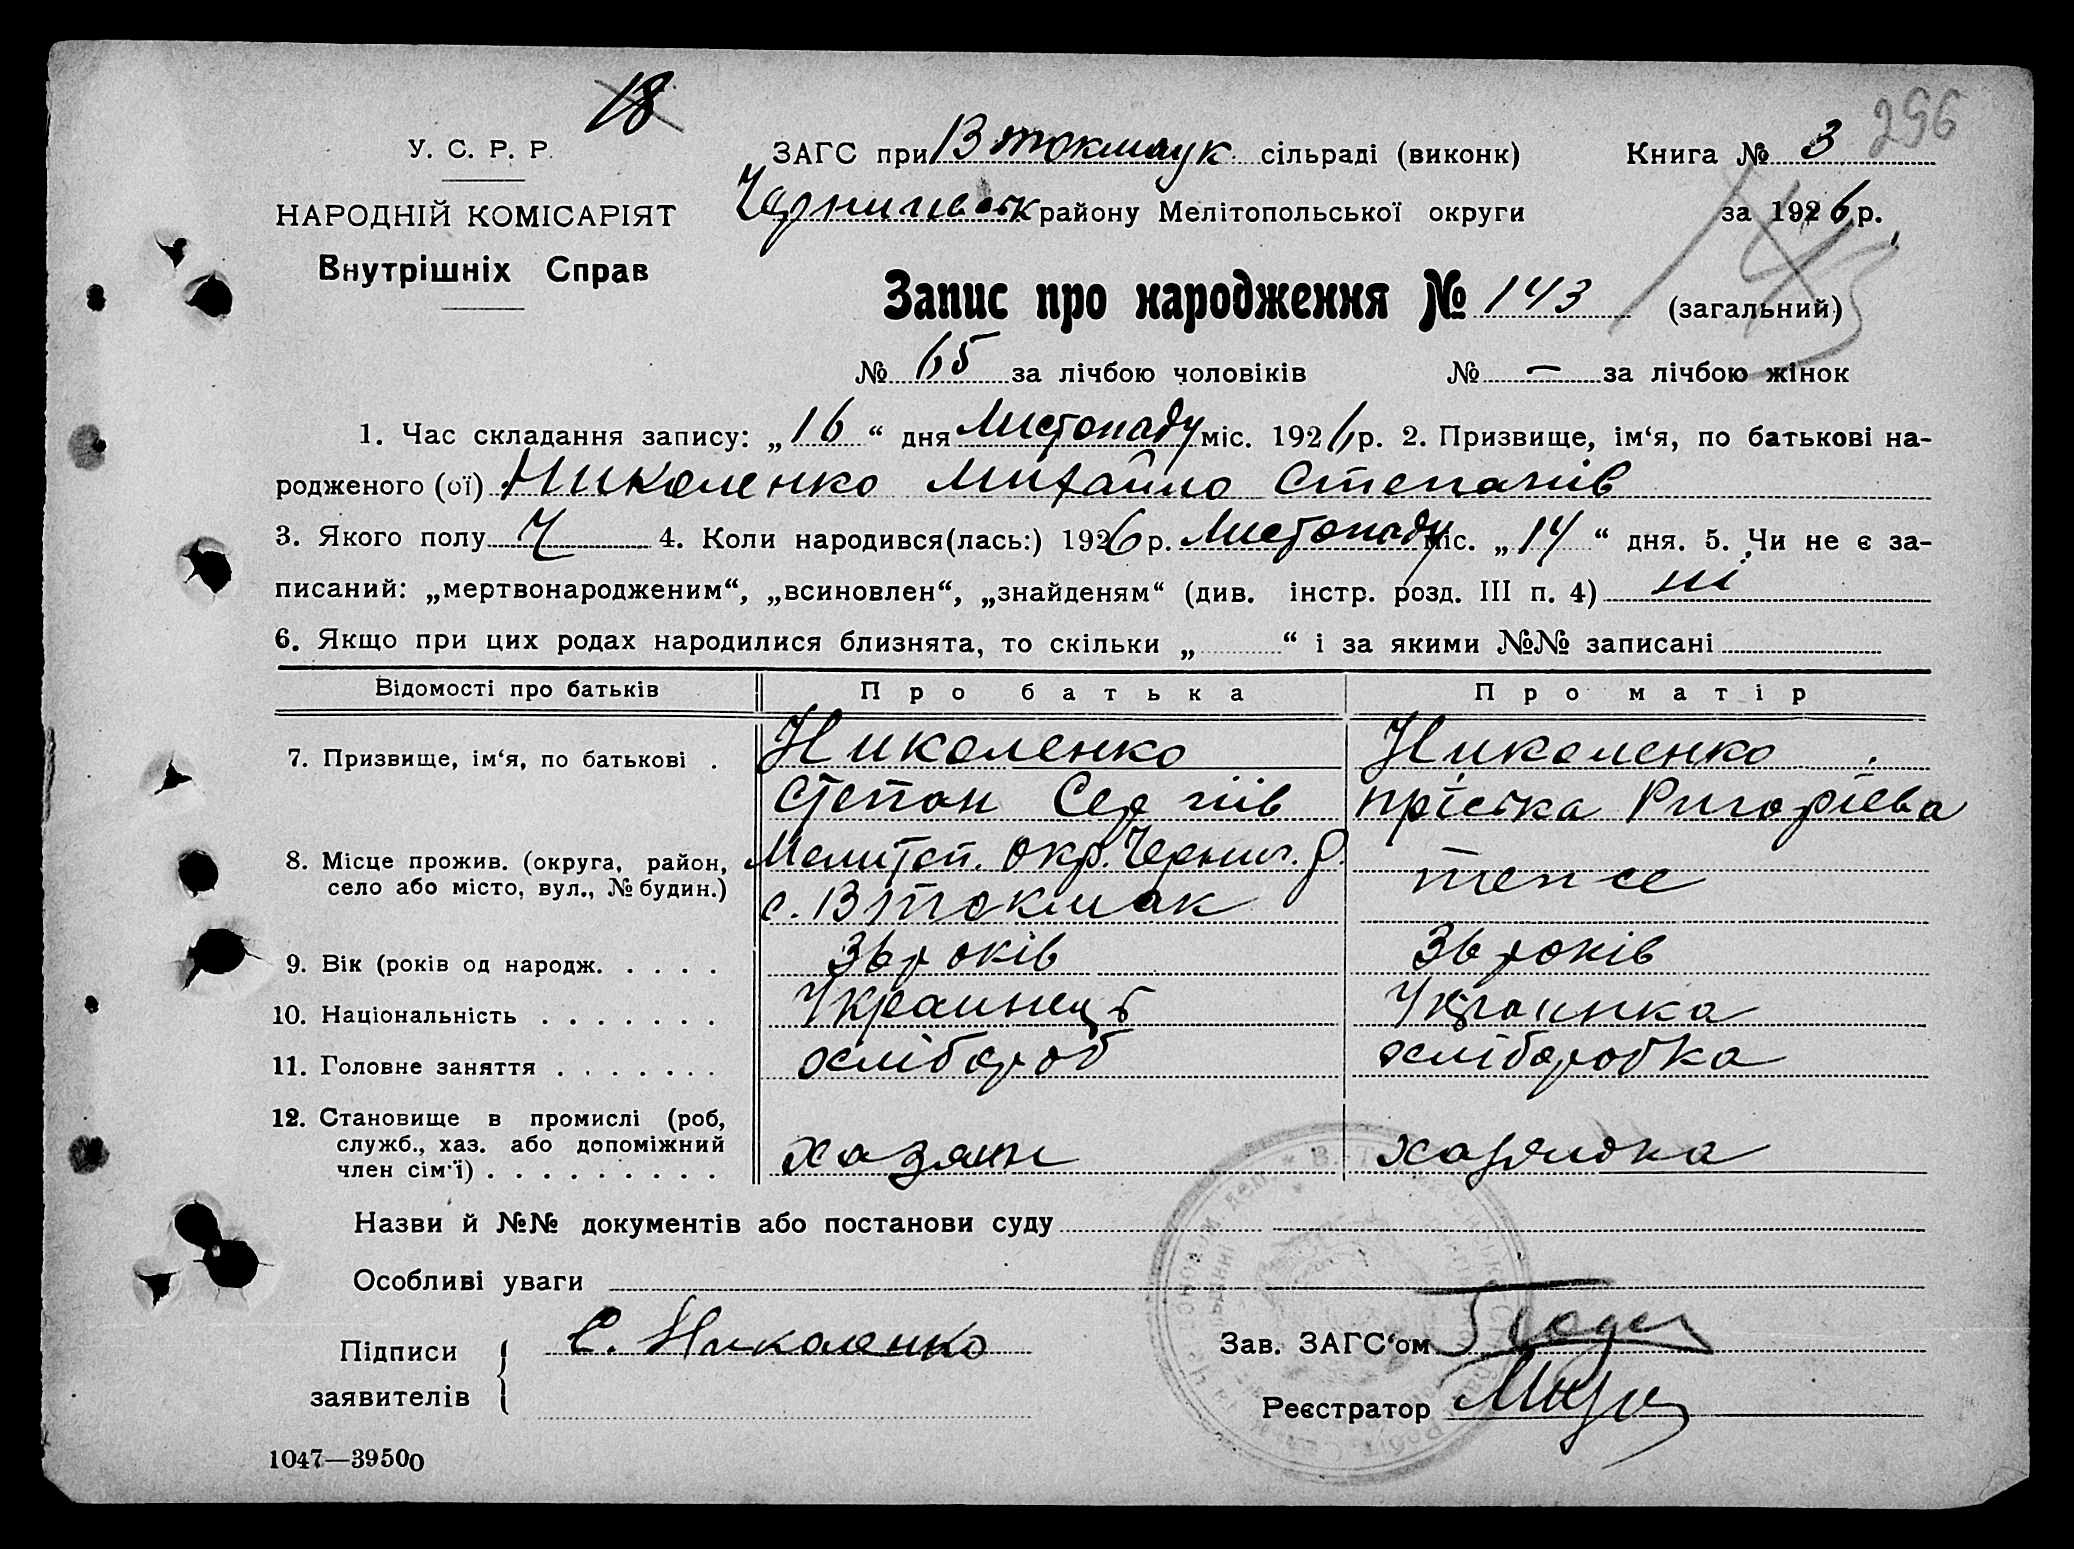 18
296
У. С. Р. Р.
НАРОДНІЙ КОМІСАРІЯТ
Внутрішніх Справ
ЗАГС при В Токмаук сільраді (виконк)
Книга № 3
Чернигівськ району Мелітопольської округи
за 1926 р.
143
Запис про народження № 143 (загальний)
№ 65 за лічбою чоловіків № — за лічбою жінок
1. Час складання запису: „16“ дня Листопаду міс. 1926 р. 2. Призвище, ім‘я, по батькові на-
родженого (ої) Николенко Михайло Степанів
3. Якого полу Ч 4. Коли народився(лась:) 1926 р. Листопаду міс. „14“ дня. 5. Чи не є за-
писаний: „мертвонародженим“, „всиновлен“, „знайденям“ (див. інстр. розд. III п. 4) ні
6. Якщо при цих родах народилися близнята, то скільки „ “ і за якими №№ записані
Відомості про батьків Про батька Про матір
7. Призвище, ім‘я, по батькові . Николенко Николенко
Степан Сергіїв Прїська Ригорїєва
8. Місце прожив. (округа, район, Мелитоп. окр. Черниг. р. теп се
село або місто, вул., № будин.) с. В Токмак
9. Вік (років од народж. . . . . 36 років 36 років
10. Національність . . . . . . . Украинець Украинка
11. Головне заняття . . . . . . . хлібороб хліборобка
12. Становище в промислі (роб,
служб., хаз. або допоміжний
член сім‘ї) . . . . . . . . . хазяин хазяйка
Назви й №№ документів або постанови суду
Особливі уваги
Підписи
заявителів
С. Николенко
Зав. ЗАГС‘ом
Реєстратор
1047—39500